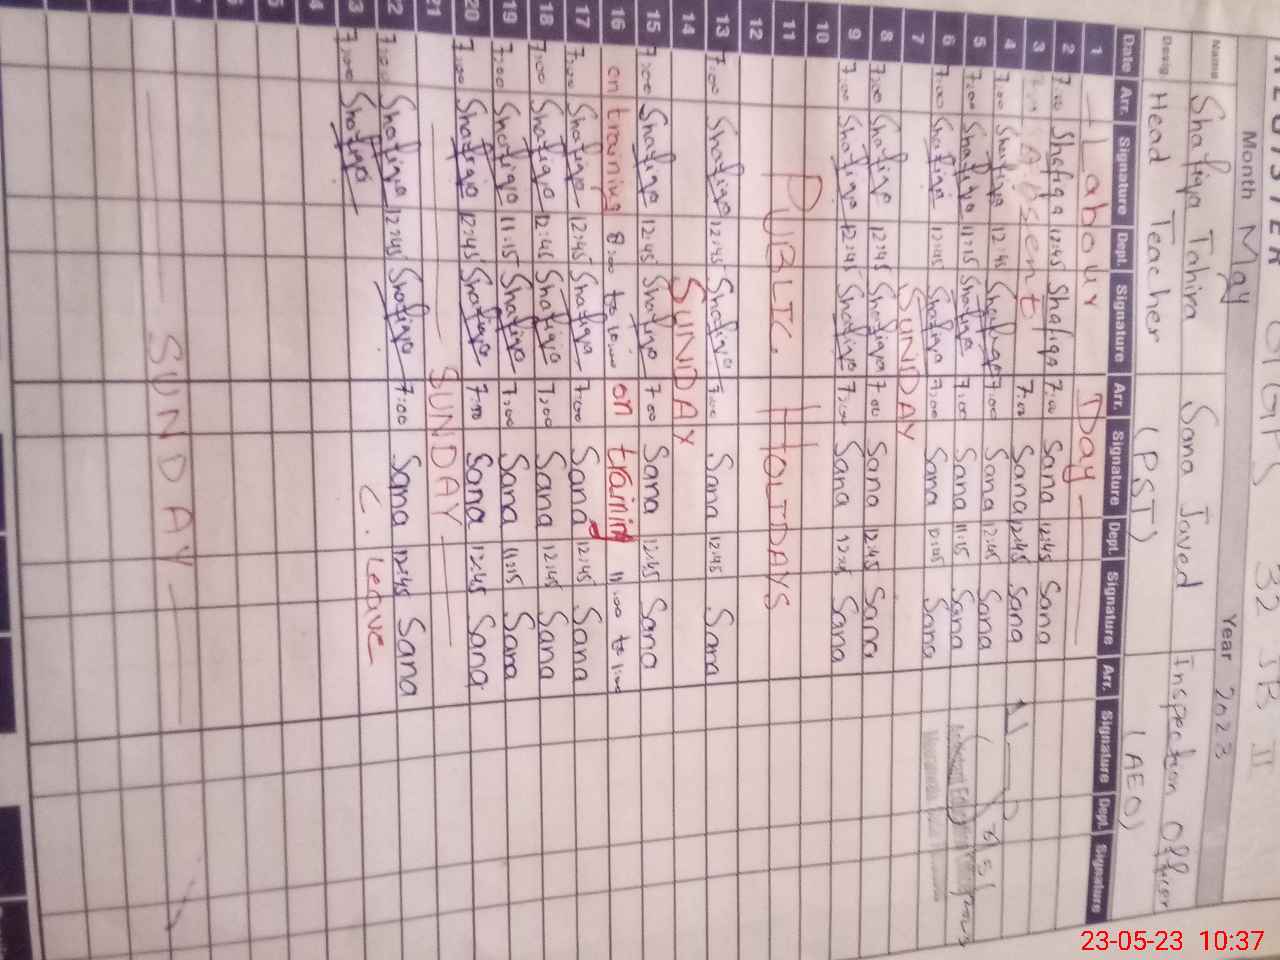 Month May Year 2023
Name Shafiqa Tahira Sana Javed Inspection Officer
Desig. Head Teacher (PST) (AEO)
Date Arr. Signature Dept. Signature Arr. Signature Dept. Signature Arr. Signature Dept. Signature
1 Labour Day
2 7:00 Shafiqa 12:45 Shafiqa 7:00 Sana 12:45 Sana
3 Absent 7:00 Sana 12:45 Sana
4 7:00 Shafiqa 12:45 Shafiqa 7:00 Sana 12:45 Sana
5 7:00 Shafiqa 11:15 Shafiqa 7:00 Sana 11:15 Sana
6 7:00 Shafiqa 12:45 Shafiqa 7:00 Sana 12:45 Sana
7 SUNDAY
8 7:00 Shafiqa 12:45 Shafiqa 7:00 Sana 12:45 Sana
9 7:00 Shafiqa 12:45 Shafiqa 7:00 Sana 12:45 Sana
10
11 PUBLIC HOLIDAYS
12
13 7:00 Shafiqa 12:45 Shafiqa 7:00 Sana 12:45 Sana
14 SUNDAY
15 7:00 Shafiqa 12:45 Shafiqa 7:00 Sana 12:45 Sana
16 on training 8:00 to 10:00 on training 11:00 to 1:00
17 7:00 Shafiqa 12:45 Shafiqa 7:00 Sana 12:45 Sana
18 7:00 Shafiqa 12:45 Shafiqa 7:00 Sana 12:45 Sana
19 7:00 Shafiqa 11:15 Shafiqa 7:00 Sana 11:15 Sana
20 7:00 Shafiqa 12:45 Shafiqa 7:00 Sana 12:45 Sana
21 SUNDAY
22 7:00 Shafiqa 12:45 Shafiqa 7:00 Sana 12:45 Sana
23 7:00 Shafiqa C. Leave
SUNDAY
23-05-23 10:37